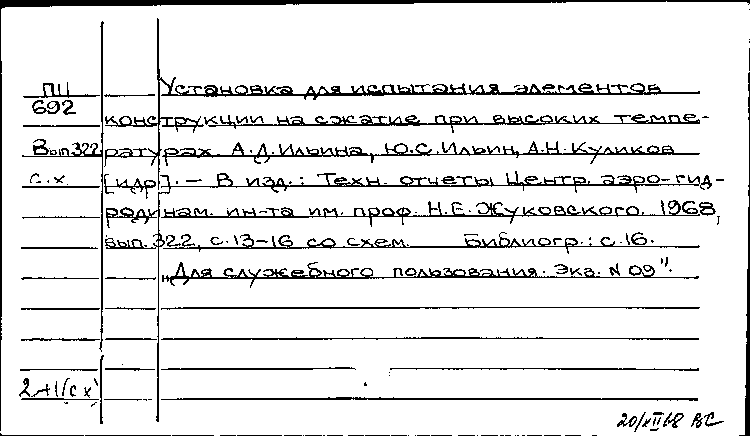 ПЦ Установка для испытания элементов
692 конструкции на сжатие при высоких темпе-
Вып.322 ратурах. А.Д.Ильина, Ю.С.Ильин, А.Н.Куликов
с.х. [и др]. — В изд.: Техн. отчеты Центр. аэро-гид-
родинам. ин-та им. проф. Н.Е.Жуковского. 1968,
вып.322, с.13-16 со схем. Библиогр.: с.16.
„Для служебного пользования. Экз. N 09".
2+1(сх)
20/XII68 ВС